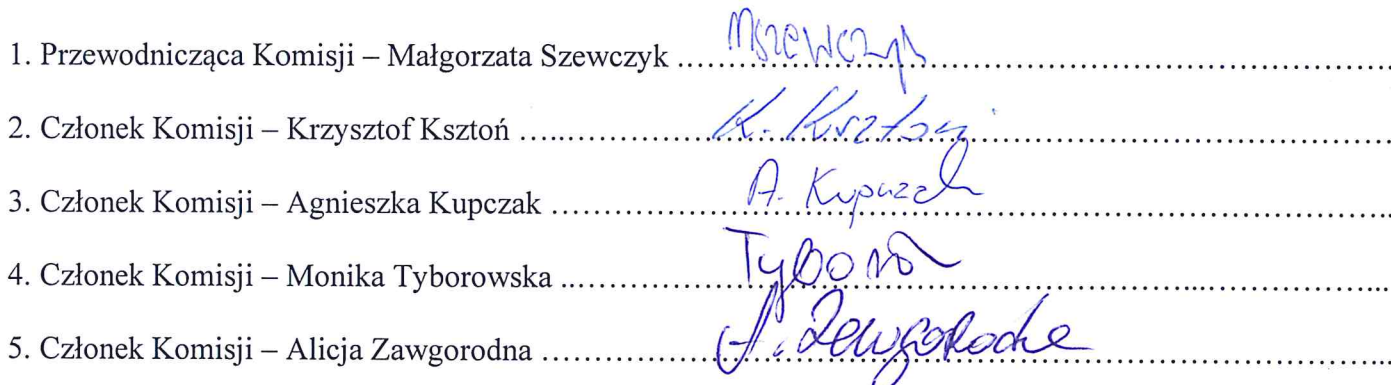 1. Przewodnicząca Komisji – Małgorzata Szewczyk ........ MSzewczyk
2. Członek Komisji – Krzysztof Ksztoń ........ K. Ksztoń
3. Członek Komisji – Agnieszka Kupczak ........ A. Kupczak
4. Członek Komisji – Monika Tyborowska ........ Tyboro
5. Członek Komisji – Alicja Zawgorodna ........ A. Zawgorodna